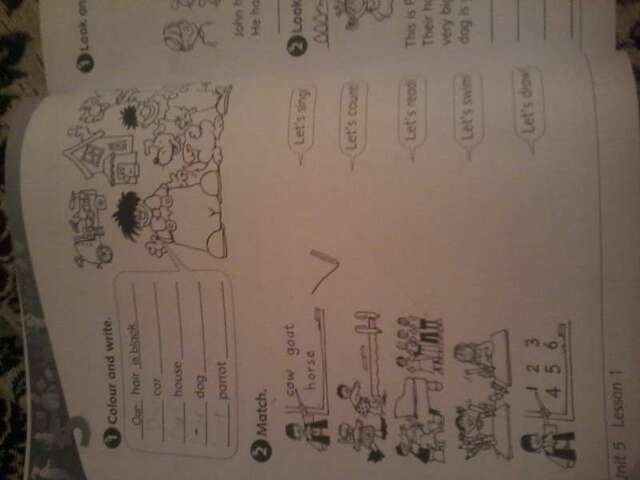 1 Colour and write.
Our hair is black
car
house
dog
parrot
2 Match.
cow goat
horse
1 2 3
4 5 6
Let's sing!
Let's count!
Let's read!
Let's swim!
Let's draw!
Unit 5 Lesson 1
1 Look
John
He ha
2 Look
This is
Their h
very big
dog is